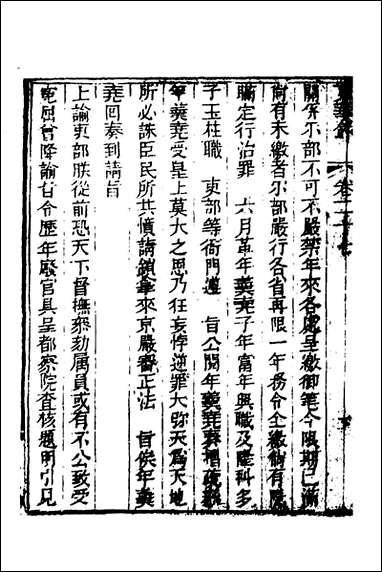 東華錄 卷二十七
關係爾部不可不嚴禁年來各處呈繳御筆今限期已滿
尚有未繳者爾部嚴行各省再限一年務令全繳倘有隱
瞞定行治罪 六月革年羹堯子年富年興職及蔭科多
子玉柱職 吏部等衙門遵 旨公閱年羹堯奏摺疏
年羹堯受皇上莫大之恩乃狂妄悖逆罪大彌天為天地
所必誅臣民所共憤請鎖拿來京嚴審正法 旨俟年羹
堯回奏到請旨
上諭吏部朕從前恐天下督撫參劾屬員或有不公致受
冤屈曾降諭旨令歷年廢官具呈都察院查核題明引見